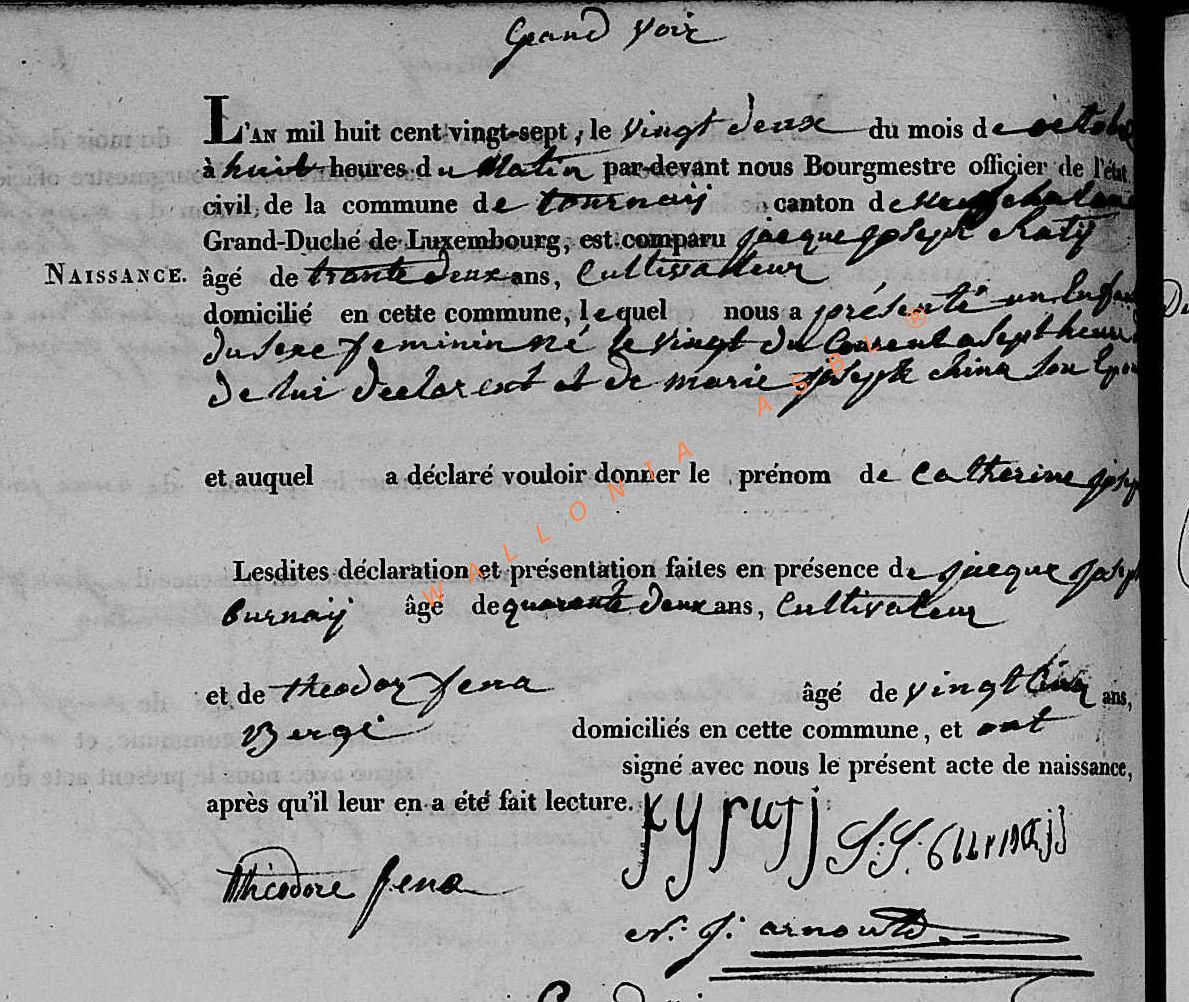 Grand Voir
L'AN mil huit cent vingt-sept, le vingt deux du mois de octob
à huit heures du Matin par-devant nous Bourgmestre officier de l'état
civil, de la commune de tournaij canton de
Grand-Duché de Luxembourg, est comparu jacque joseph
NAISSANCE. âgé de trante deux ans, Cultissatteur
domicilié en cette commune, lequel nous a présenté un Enfan
du sexe feminin né le vingt du Courent a sept heur
de lui declarent et de marie joseph china son Epou
et auquel a déclaré vouloir donner le prénom de Catherine josep
Lesdites déclaration et présentation faites en présence de jacque joseph
burnaij âgé de quarante deux ans, Cultivateur
et de theodor fena âgé de vingt Cinq ans,
Bergé domiciliés en cette commune, et ont
signé avec nous le présent acte de naissance,
après qu'il leur en a été fait lecture.
J. J. burnaij
théodore fena
N. J. arnould
WALLONIA ASBL ®